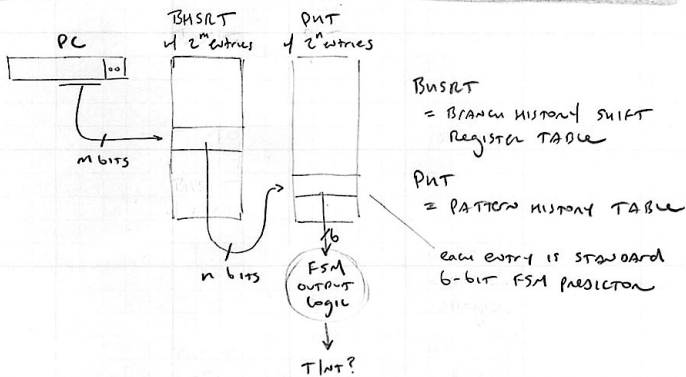 PC
00
m bits
BHSRT
w/ 2^m entries
n bits
PHT
w/ 2^n entries
6
FSM
OUTPUT
Logic
T/NT?
BHSRT
= BRANCH HISTORY SHIFT
REGISTER TABLE
PHT
= PATTERN HISTORY TABLE
each entry is STANDARD
6-bit FSM PREDICTOR